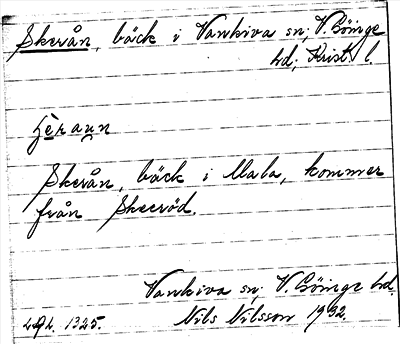 Skerån, bäck i Vankiva sn; V. Göinge
hd; Krist. l.
Skerån, bäck i Mala, kommer
från Skeeröd.
Vankiva sn; V. Göinge hd.
Nils Nilsson 1932.
1325.